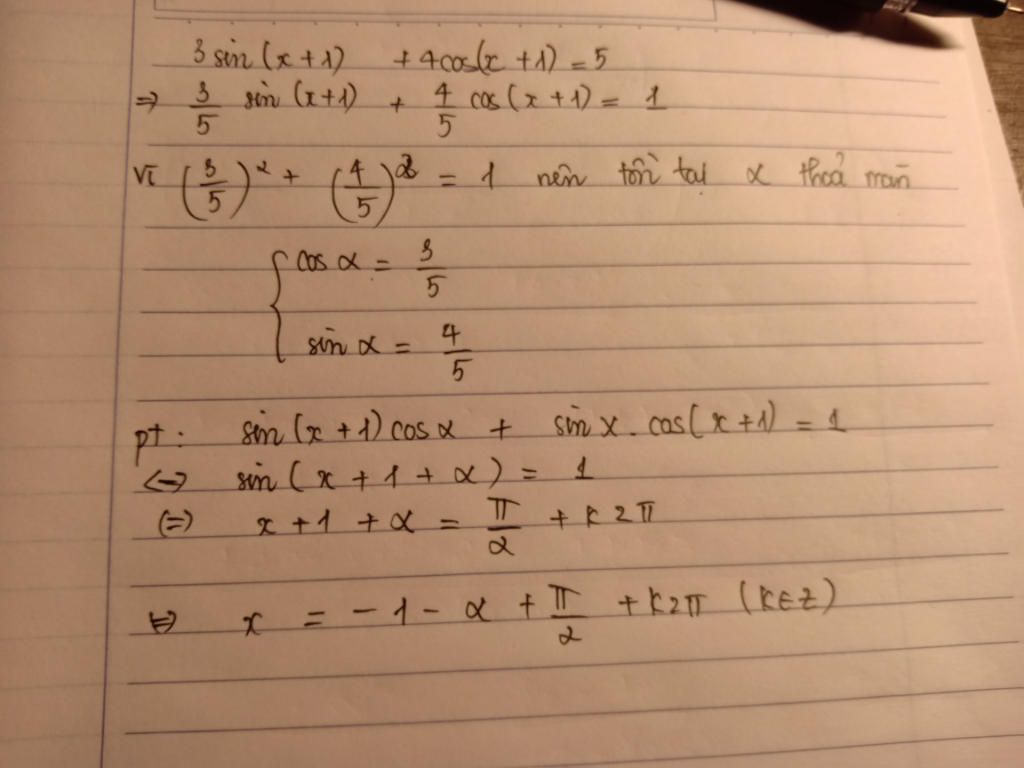 3 sin (x + 1) + 4cos(x + 1) = 5
=> 3/5 sin (x+1) + 4/5 cos (x + 1) = 1
Vì (3/5)² + (4/5)² = 1 nên tồn tại α thoả mãn
{ cos α = 3/5
sin α = 4/5
pt : sin (x + 1) cos α + sin α . cos( x + 1) = 1
<=> sin ( x + 1 + α ) = 1
(=) x + 1 + α = π/2 + k 2 π
<=> x = - 1 - α + π/2 + k2π (k∈Z)